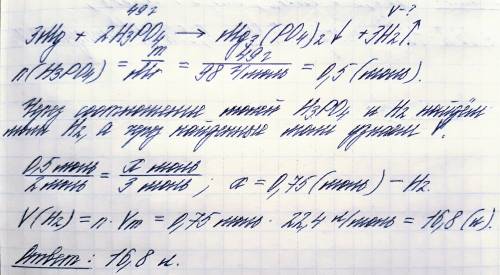 49г V-?
3Mg + 2H₃PO₄ → Mg₃(PO₄)₂↓ + 3H₂↑.
n(H₃PO₄) = m/Mr = 49г/98 г/моль = 0,5 (моль).
Через соотношение молей H₃PO₄ и H₂ найдём
моли H₂, а через найденные моли узнаем V.
0,5 моль/2 моль = x моль/3 моль; x = 0,75 (моль) – H₂.
V(H₂) = n · Vm = 0,75 моль · 22,4 л/моль = 16,8 (л).
Ответ: 16,8 л.